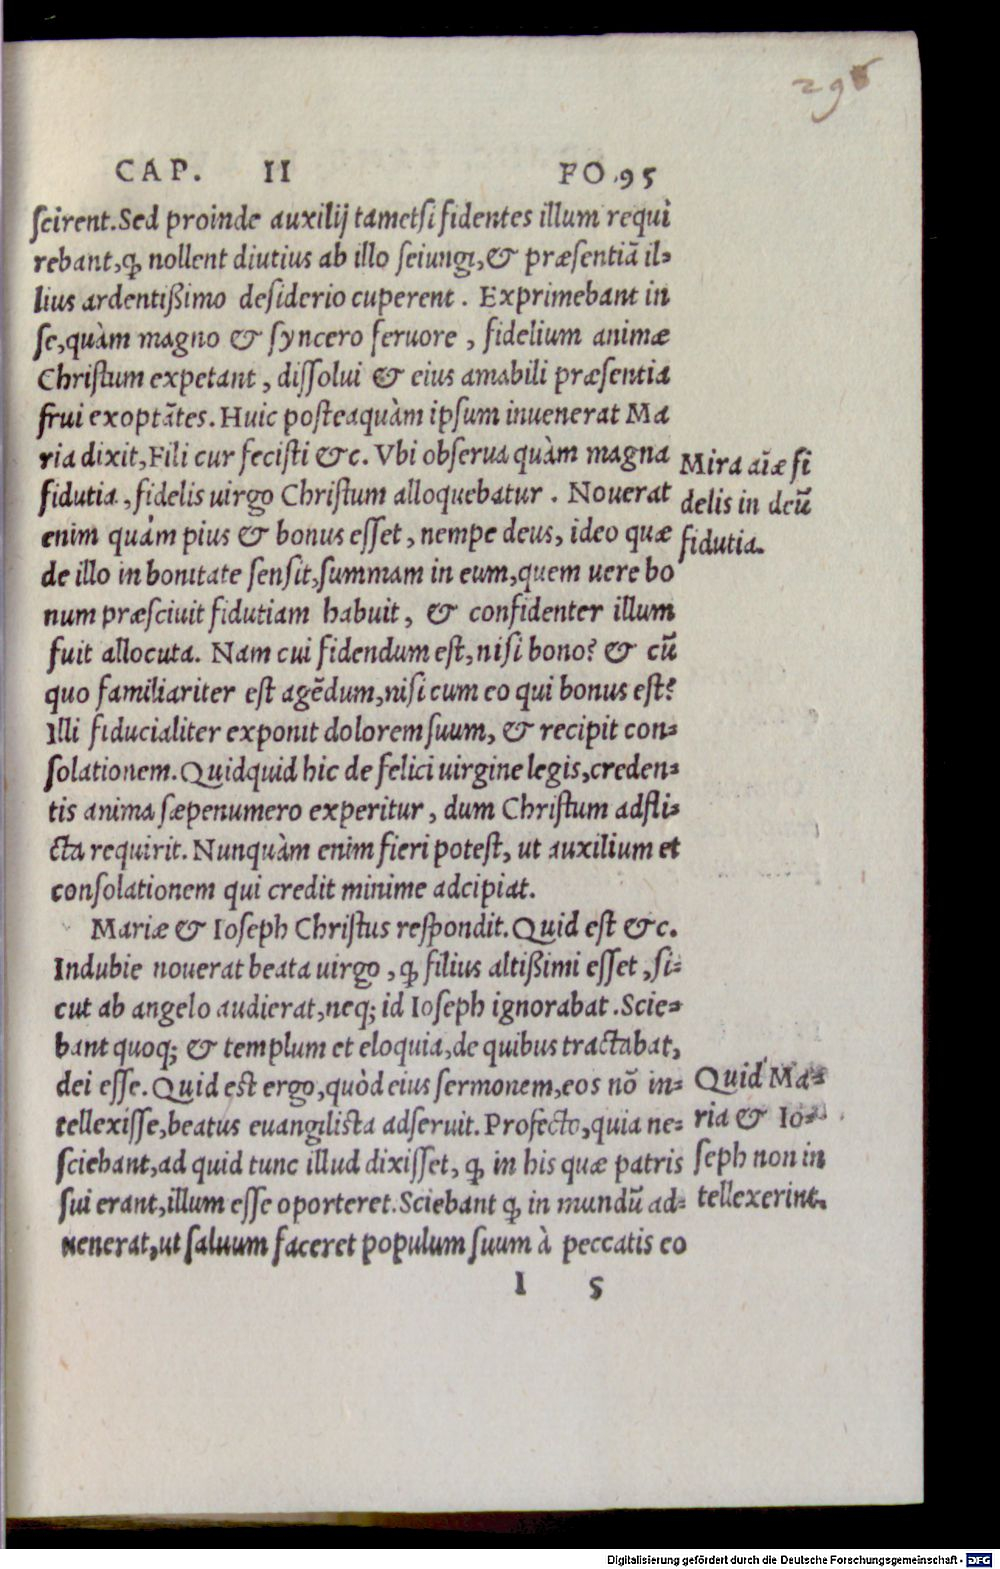 295
CAP. II FO. 95
ſcirent. Sed proinde auxilij tametſi fidentes illum requi
rebant, ꝙ nollent diutius ab illo ſeiungi, & præſentiā il-
lius ardentißimo deſiderio cuperent. Exprimebant in
ſe, quàm magno & ſyncero feruore, fidelium animæ
Chriſtum expetant, diſſolui & eius amabili præſentia
frui exoptātes. Huic poſteaquàm ipſum inuenerat Ma
ria dixit, Fili cur feciſti &c. Vbi obſerua quàm magna
Mira aīæ fi
fidutia, fidelis uirgo Chriſtum alloquebatur. Nouerat
delis in deū
enim quàm pius & bonus eſſet, nempe deus, ideo quæ
fidutia.
de illo in bonitate ſenſit, ſummam in eum, quem uere bo
num præſciuit fidutiam habuit, & confidenter illum
fuit allocuta. Nam cui fidendum eſt, niſi bono? & cū
quo familiariter eſt agēdum, niſi cum eo qui bonus eſt?
Illi fiducialiter exponit dolorem ſuum, & recipit con-
ſolationem. Quidquid hic de felici uirgine legis, creden-
tis anima ſæpenumero experitur, dum Chriſtum adfli-
cta requirit. Nunquàm enim fieri poteſt, ut auxilium et
conſolationem qui credit minime adcipiat.
Mariæ & Ioſeph Chriſtus reſpondit. Quid eſt &c.
Indubie nouerat beata uirgo, ꝙ filius altißimi eſſet, ſi-
cut ab angelo audierat, neq; id Ioſeph ignorabat. Scie-
bant quoq; & templum et eloquia, de quibus tractabat,
dei eſſe. Quid eſt ergo, quòd eius ſermonem, eos nō in-
Quid Ma-
tellexiſſe, beatus euangiliſta adſeruit. Profecto, quia ne-
ria & Io-
ſciebant, ad quid tunc illud dixiſſet, ꝙ in his quæ patris
ſeph non in
ſui erant, illum eſſe oporteret. Sciebant ꝙ in mundū ad-
tellexerint.
uenerat, ut ſaluum faceret populum ſuum à peccatis eo
I 5
Digitalisierung gefördert durch die Deutsche Forschungsgemeinschaft - DFG